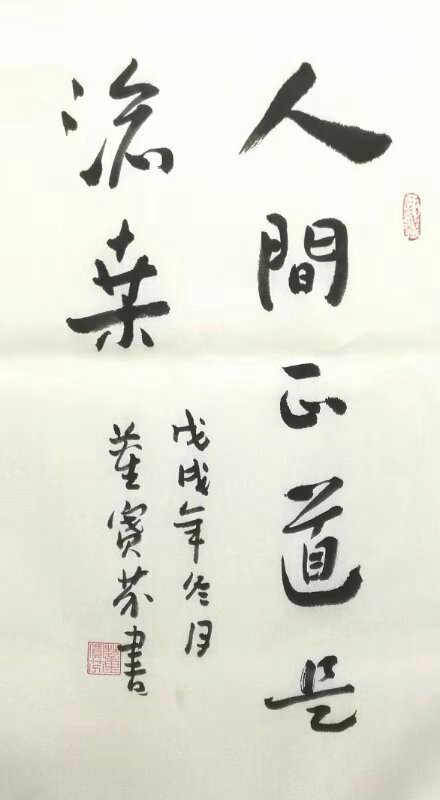 人間正道是
滄桑
戊戌年冬月
董寶芬書